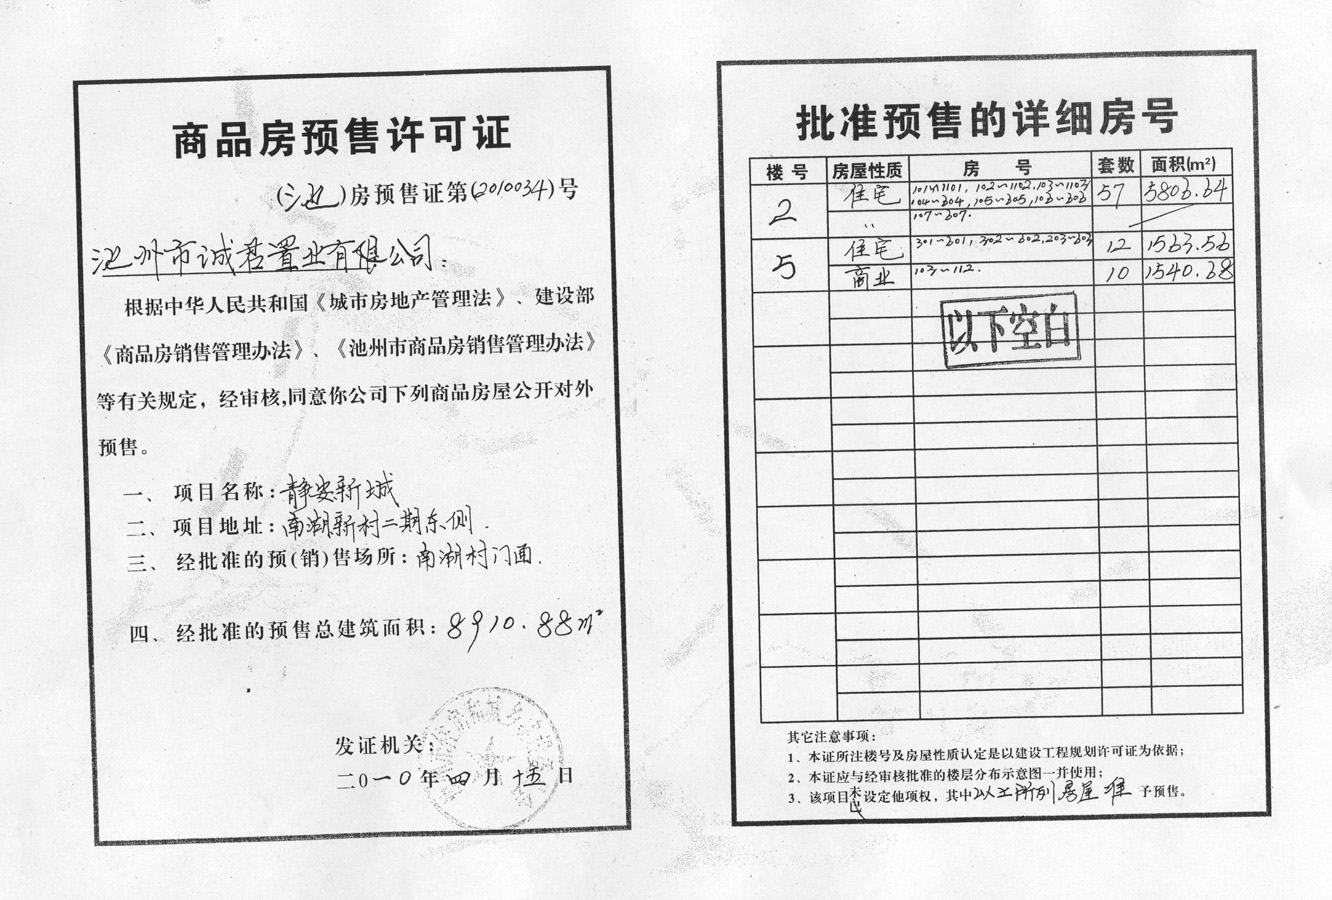 商品房预售许可证
(池)房预售证第(2010034)号
池州市诚君置业有限公司:
根据中华人民共和国《城市房地产管理法》、建设部
《商品房销售管理办法》、《池州市商品房销售管理办法》
等有关规定，经审核,同意你公司下列商品房屋公开对外
预售。
一、项目名称:静安新城
二、项目地址:南湖新村二期东侧.
三、经批准的预(销)售场所:南湖村门面.
四、经批准的预售总建筑面积:8910.88m²
发证机关:
二0一0年四月十五日
批准预售的详细房号
楼号 房屋性质 房号 套数 面积(m²)
2 住宅 101~1101, 102~1102, 103~1103 57 5806.64
104~604, 105~605, 106~606
〃 107~607.
5 住宅 301~601, 302~602, 203~603 12 1563.56
商业 103~112. 10 1540.68
以下空白
其它注意事项:
1、本证所注楼号及房屋性质认定是以建设工程规划许可证为依据;
2、本证应与经审核批准的楼层分布示意图一并使用;
3、该项目未已设定他项权，其中以上所列房屋准予预售。